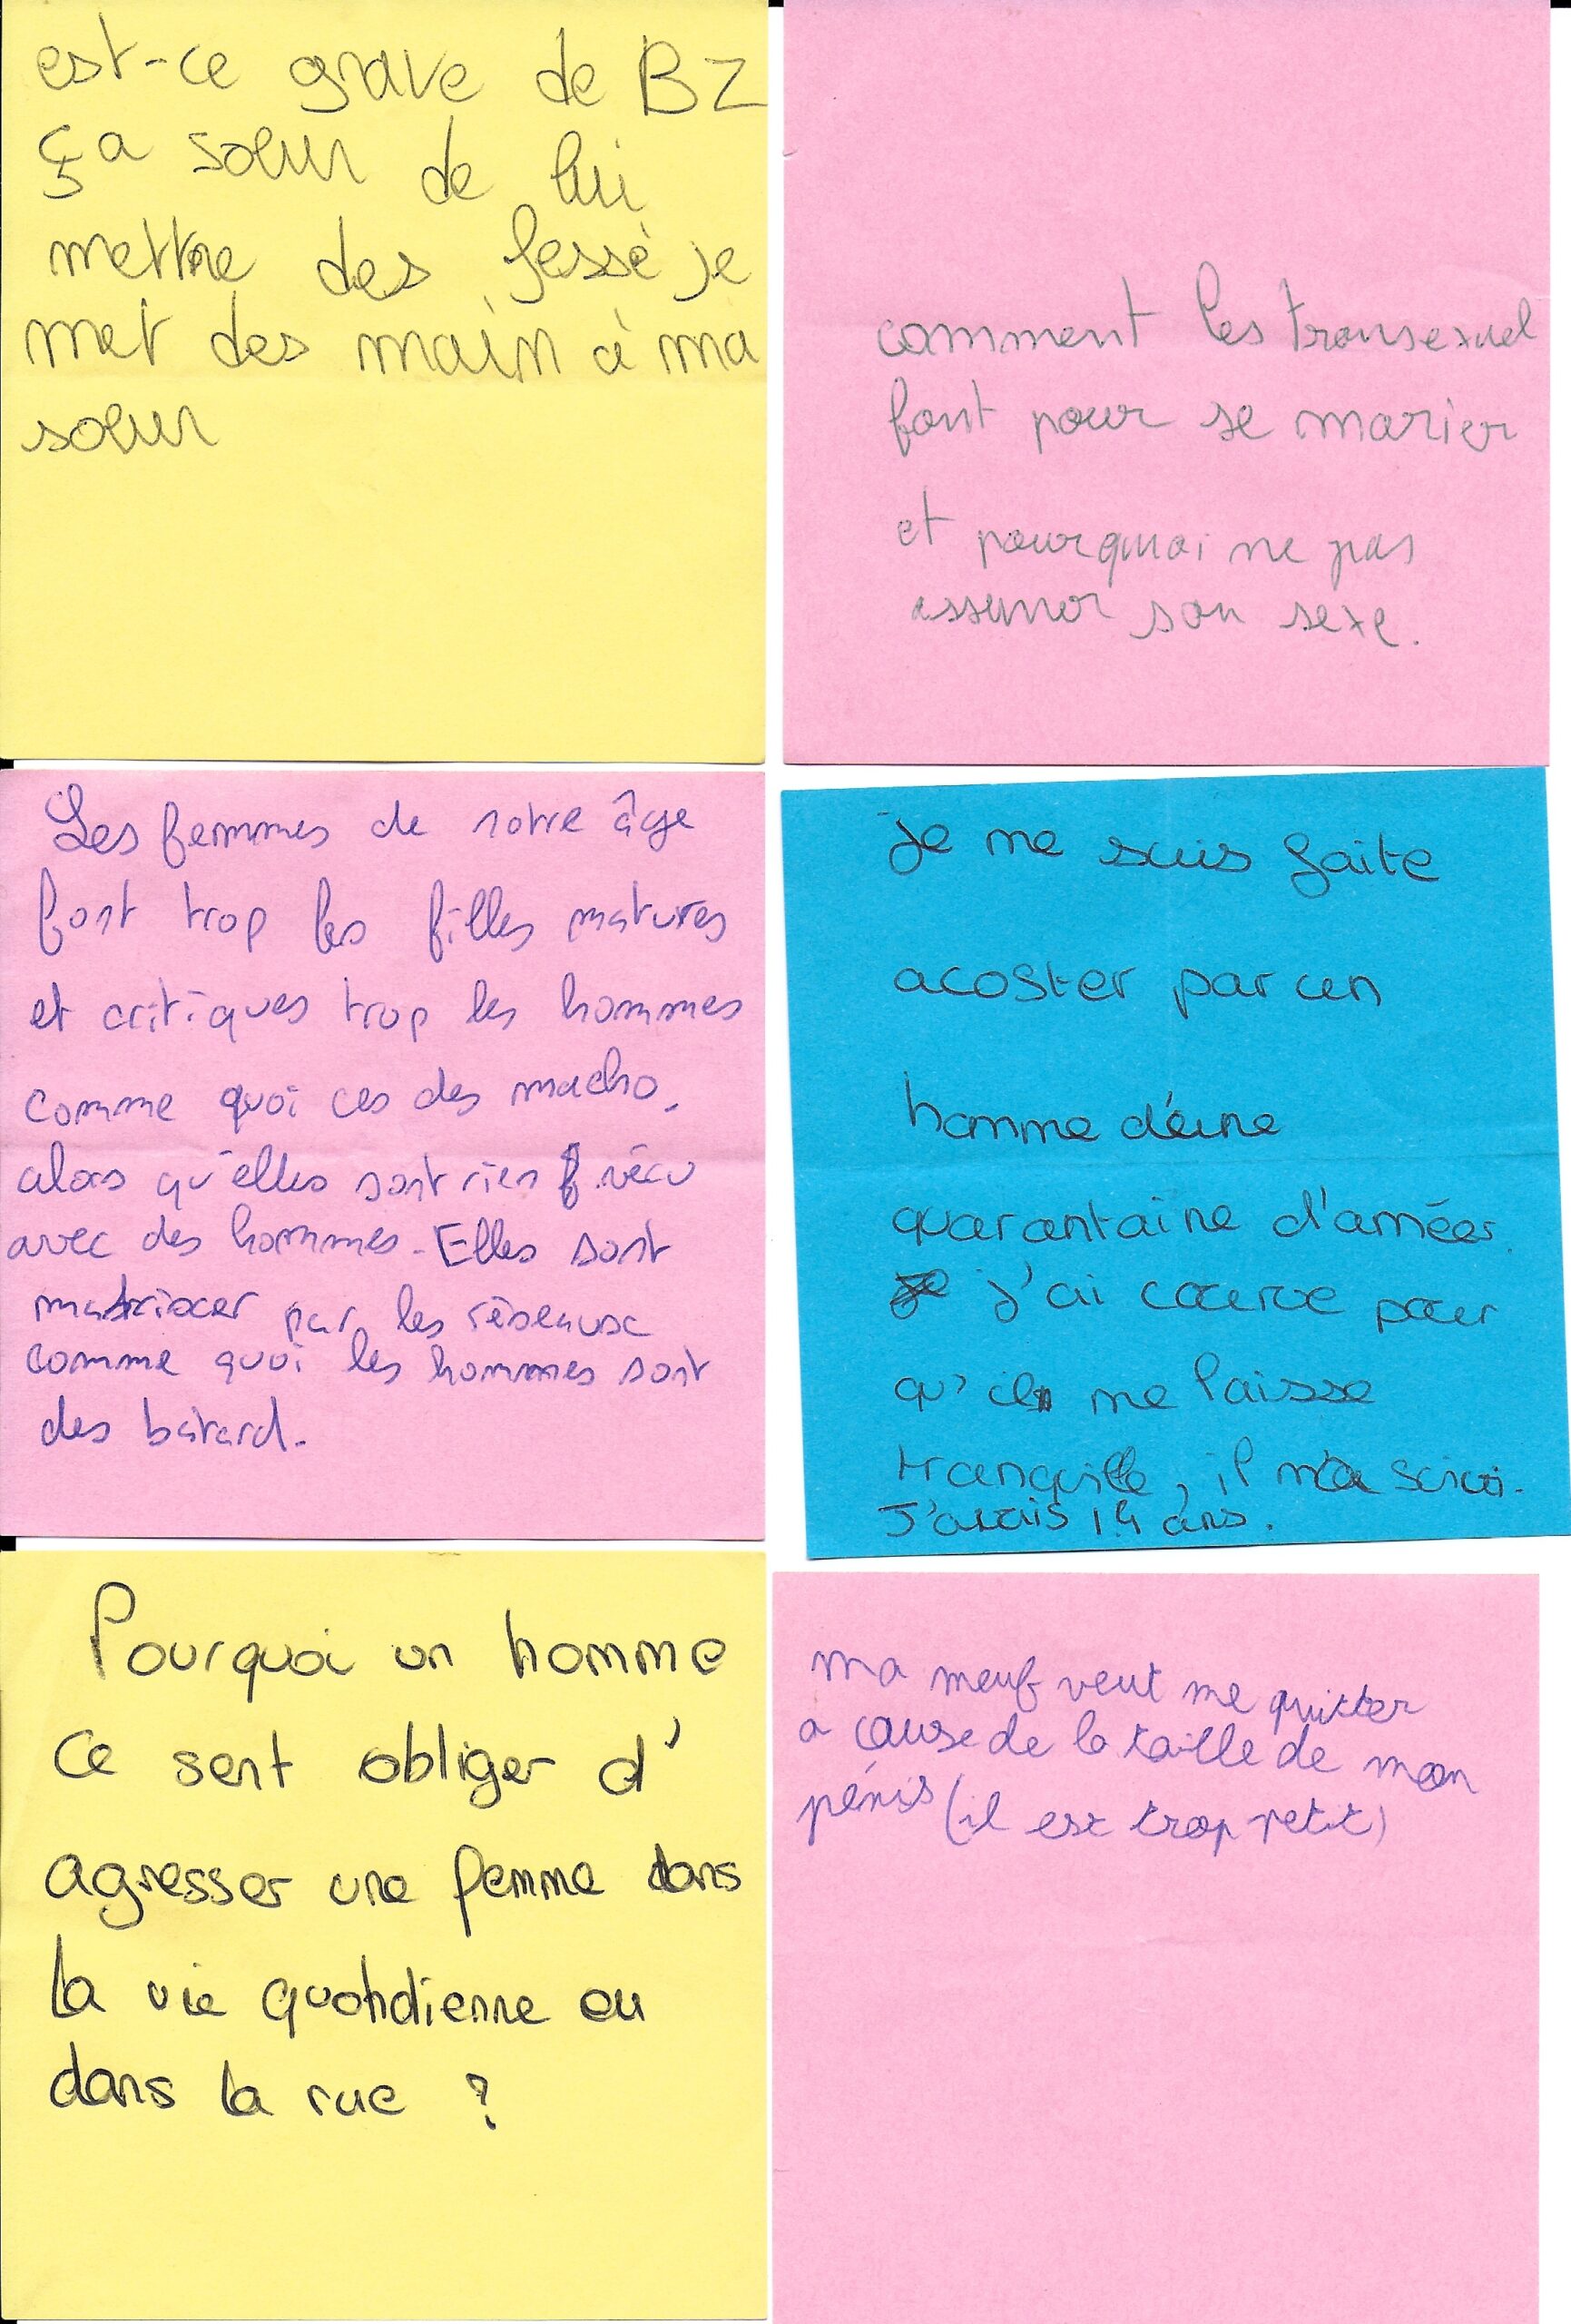 est-ce grave de BZ
ça soeur de lui
mettre des fessé je
met des main à ma
soeur
comment les transexuel
font pour se marier
et pourquoi ne pas
assumer son sexe.
Les femmes de notre âge
font trop les filles matures
et critiques trop les hommes
comme quoi ces des macho,
alors qu'elles sont rien vécu
avec des hommes. Elles sont
matrixcer par les réseaux
comme quoi les hommes sont
des batard.
je me suis faite
acoster par un
homme d'une
quarantaine d'années.
j'ai courue pour
qu'il me laisse
tranquille, il m'a suivi.
J'avais 14 ans.
Pourquoi un homme
ce sent obliger d'
agresser une femme dans
la vie quotidienne ou
dans la rue ?
ma meuf veut me quitter
a cause de la taille de mon
pénis (il est trop petit)